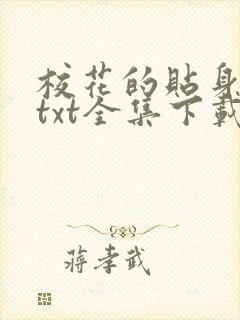 校花的貼身
txt全集下載
蔣孝武